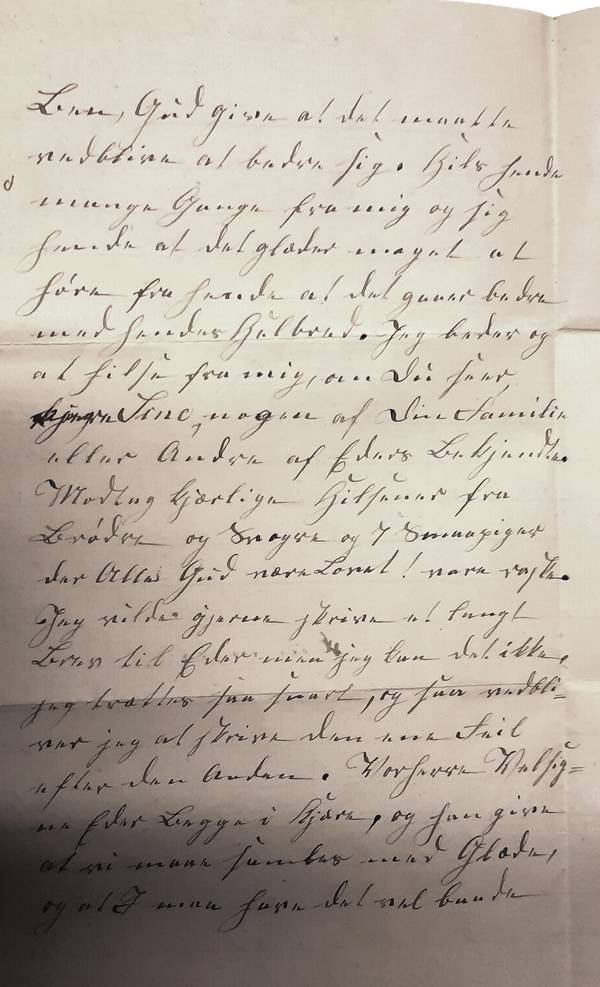 Ben, Gud give at det maatte
vedblive at bedre sig. Hils hende
mange Gange fra mig og sig
hende at det glæder meget at
høre fra hende at det gaaer bedre
med hendes Helbred. Jeg beder og
at hilse fra mig, om Du seer,
kjære Sine, nogen af Din Familie
eller Andre af Eders Bekjendte.
Modtag kjærlige Hilsener fra
Brødre og Svogre og 7 Smaapiger
der Alle Gud være Lovet! vare raske.
Jeg vilde gjerne skrive et langt
Brev til Eder men jeg kan det ikke,
jeg trættes saa snart, og saa vedbli=
ver jeg at skrive den ene Feil
efter den Anden. Vorherre Velsig=
ne Eder Begge i Kjære, og han give
at vi maae samles med Glæde,
og at I maa have det vel baade